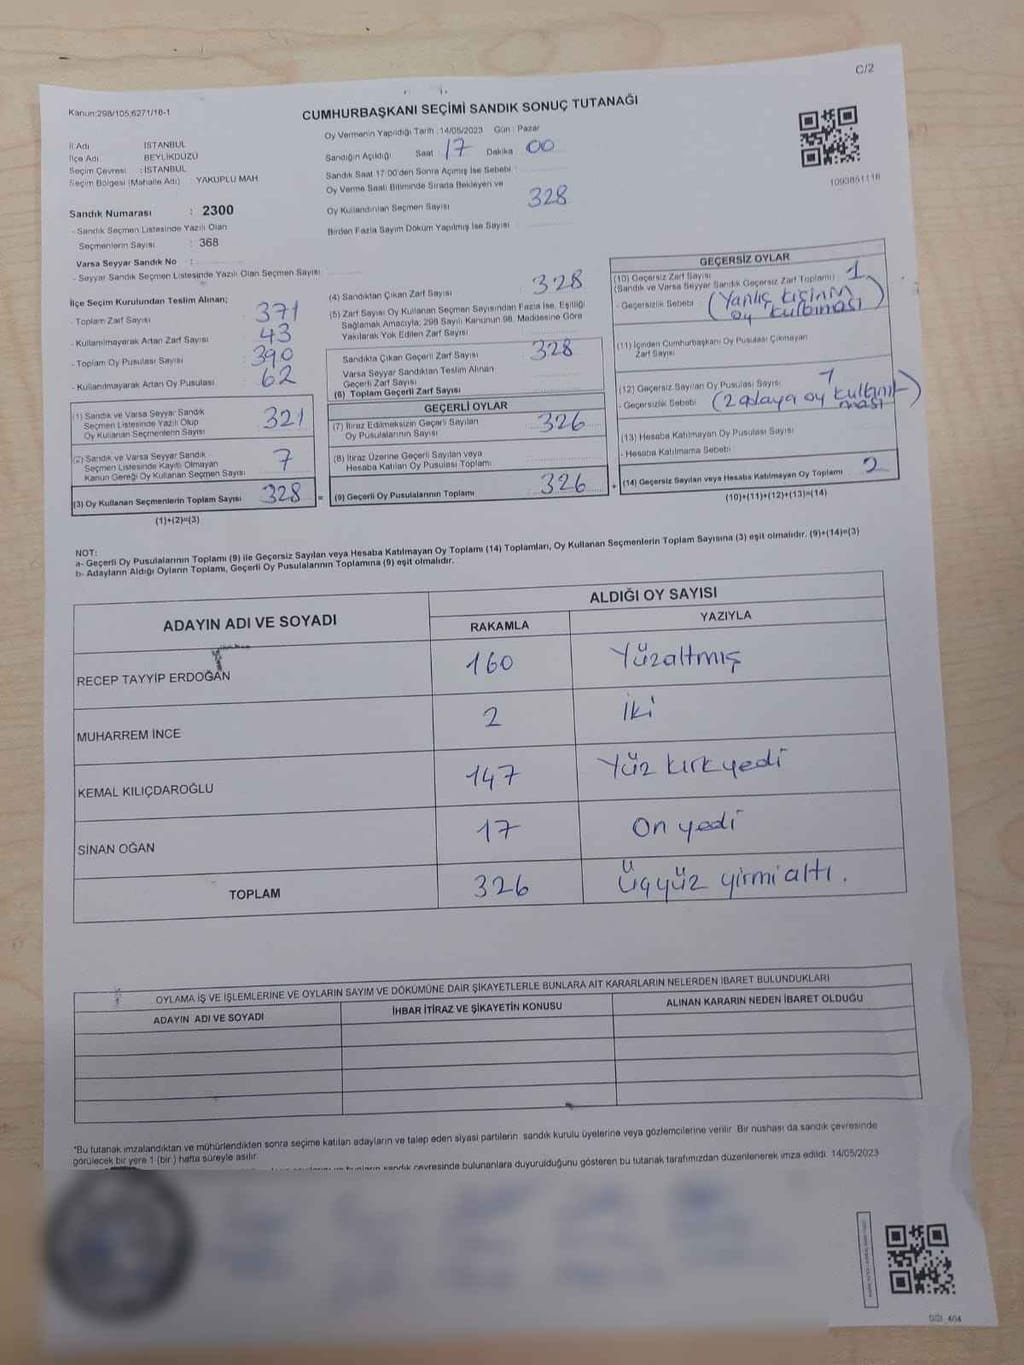 C/2
Kanun:298/105;6271/18-1
CUMHURBAŞKANI SEÇİMİ SANDIK SONUÇ TUTANAĞI
İl Adı İSTANBUL
İlçe Adı BEYLİKDÜZÜ
Seçim Çevresi : İSTANBUL
Seçim Bölgesi (Mahalle Adı) : YAKUPLU MAH
Oy Vermenin Yapıldığı Tarih : 14/05/2023 Gün : Pazar
Sandığın Açıldığı Saat : 17 Dakika 00
Sandık Saat 17:00'den Sonra Açımış İse Sebebi :
Oy Verme Saati Bitiminde Sırada Bekleyen ve
Oy Kullandırılan Seçmen Sayısı 328
Birden Fazla Sayım Döküm Yapılmış İse Sayısı :
1093851118
Sandık Numarası : 2300
- Sandık Seçmen Listesinde Yazılı Olan
Seçmenlerin Sayısı : 368
Varsa Seyyar Sandık No :
- Seyyar Sandık Seçmen Listesinde Yazılı Olan Seçmen Sayısı
İlçe Seçim Kurulundan Teslim Alınan;
- Toplam Zarf Sayısı 371
- Kullanılmayarak Artan Zarf Sayısı 43
- Toplam Oy Pusulası Sayısı 390
- Kullanılmayarak Artan Oy Pusulası 62
(1) Sandık ve Varsa Seyyar Sandık
Seçmen Listesinde Yazılı Olup
Oy Kullanan Seçmenlerin Sayısı 321
(2) Sandık ve Varsa Seyyar Sandık
Seçmen Listesinde Kayıtlı Olmayan
Kanun Gereği Oy Kullanan Seçmen Sayısı 7
(3) Oy Kullanan Seçmenlerin Toplam Sayısı 328 =
(1)+(2)=(3)
(4) Sandıktan Çıkan Zarf Sayısı 328
(5) Zarf Sayısı Oy Kullanan Seçmen Sayısından Fazla İse, Eşitliği
Sağlamak Amacıyla, 298 Sayılı Kanunun 98. Maddesine Göre
Yakılarak Yok Edilen Zarf Sayısı
Sandıkta Çıkan Geçerli Zarf Sayısı 328
Varsa Seyyar Sandıktan Teslim Alınan
Geçerli Zarf Sayısı
(6) Toplam Geçerli Zarf Sayısı
GEÇERLİ OYLAR
(7) İtiraz Edilmeksizin Geçerli Sayılan
Oy Pusulalarının Sayısı 326
(8) İtiraz Üzerine Geçerli Sayılan veya
Hesaba Katılan Oy Pusulası Toplamı
(9) Geçerli Oy Pusulalarının Toplamı 326 +
GEÇERSİZ OYLAR
(10) Geçersiz Zarf Sayısı
(Sandık ve Varsa Seyyar Sandık Geçersiz Zarf Toplamı) 1
- Geçersizlik Sebebi (Yanlış kişinin
oy kullanması)
(11) İçinden Cumhurbaşkanı Oy Pusulası Çıkmayan
Zarf Sayısı
(12) Geçersiz Sayılan Oy Pusulası Sayısı 1
- Geçersizlik Sebebi (2 adaya oy kullanıl-
ması)
(13) Hesaba Katılmayan Oy Pusulası Sayısı
- Hesaba Katılmama Sebebi
(14) Geçersiz Sayılan veya Hesaba Katılmayan Oy Toplamı 2
(10)+(11)+(12)+(13)=(14)
NOT:
a- Geçerli Oy Pusulalarının Toplamı (9) ile Geçersiz Sayılan veya Hesaba Katılmayan Oy Toplamı (14) Toplamları, Oy Kullanan Seçmenlerin Toplam Sayısına (3) eşit olmalıdır. (9)+(14)=(3)
b- Adayların Aldığı Oyların Toplamı, Geçerli Oy Pusulalarının Toplamına (9) eşit olmalıdır.
ADAYIN ADI VE SOYADI
ALDIĞI OY SAYISI
RAKAMLA YAZIYLA
RECEP TAYYİP ERDOĞAN 160 Yüzaltmış
MUHARREM İNCE 2 iki
KEMAL KILIÇDAROĞLU 147 Yüz kırkyedi
SİNAN OĞAN 17 On yedi
TOPLAM 326 Üçyüz yirmialtı.
OYLAMA İŞ VE İŞLEMLERİNE VE OYLARIN SAYIM VE DÖKÜMÜNE DAİR ŞİKAYETLERLE BUNLARA AİT KARARLARIN NELERDEN İBARET BULUNDUKLARI
ADAYIN ADI VE SOYADI İHBAR İTİRAZ VE ŞİKAYETİN KONUSU ALINAN KARARIN NEDEN İBARET OLDUĞU
*Bu tutanak imzalandıktan ve mühürlendikten sonra seçime katılan adayların ve talep eden siyasi partilerin sandık kurulu üyelerine veya gözlemcilerine verilir. Bir nüshası da sandık çevresinde
görülecek bir yere 1 (bir) hafta süreyle asılır.
sandık çevresinde bulunanlara duyurulduğunu gösteren bu tutanak tarafımızdan düzenlenerek imza edildi. 14/05/2023